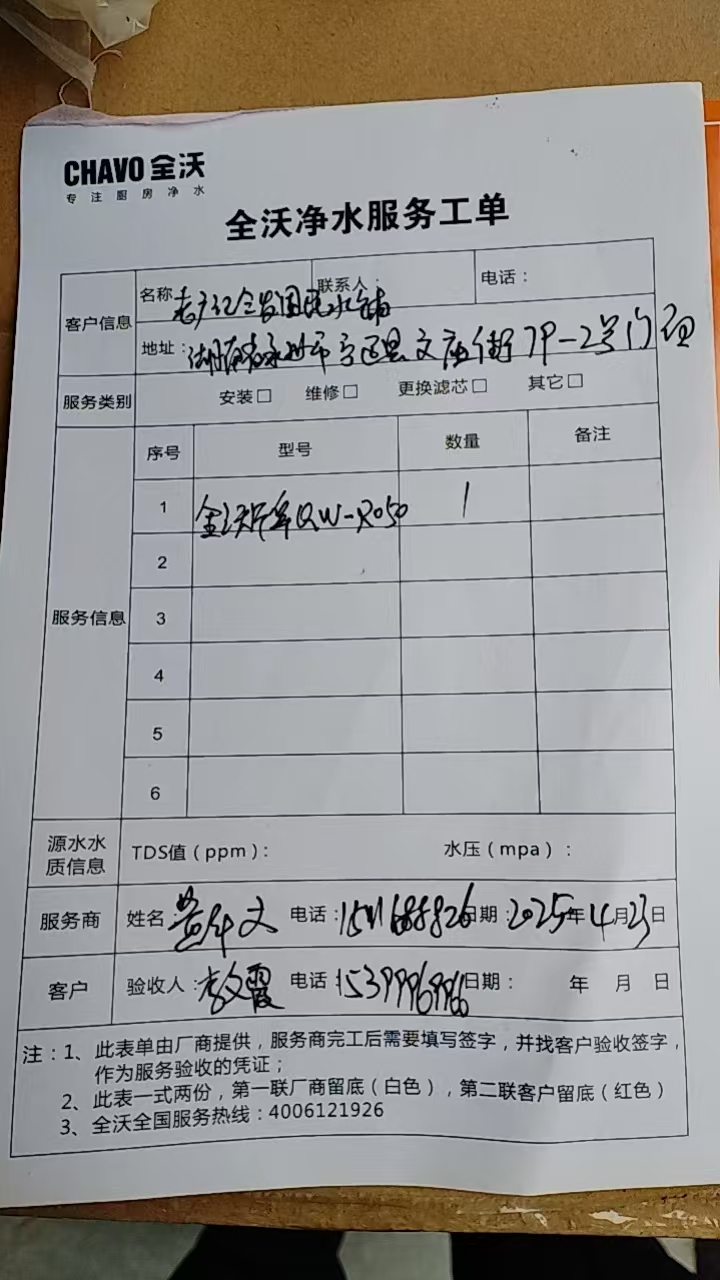 CHAVO 全沃
专注厨房净水
全沃净水服务工单
客户信息
名称 联系人: 电话:
地址: 湖南省永州市宁远县文庙街79-2号门面
服务类别 安装□ 维修□ 更换滤芯□ 其它□
服务信息
序号 型号 数量 备注
1 QW-R050 1
2
3
4
5
6
源水水质信息 TDS值(ppm): 水压(mpa):
服务商 姓名: 电话: 日期:2025年4月23日
客户 验收人:李文霞 电话 日期: 年 月 日
注:1、此表单由厂商提供,服务商完工后需要填写签字,并找客户验收签字,
作为服务验收的凭证;
2、此表一式两份,第一联厂商留底(白色),第二联客户留底(红色)
3、全沃全国服务热线:4006121926